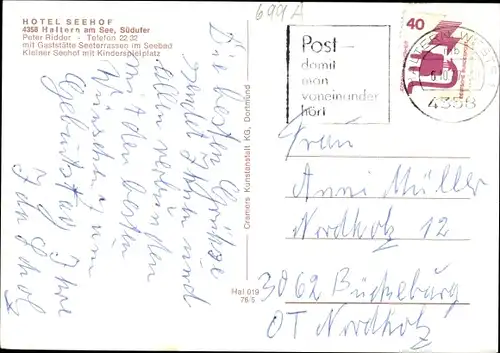 HOTEL SEEHOF
4358 Haltern am See, Südufer
Peter Ridder - Telefon 22 32
mit Gaststätte Seeterrassen im Seebad
Kleiner Seehof mit Kinderspielplatz
Die besten Grüße
sendet Ihnen und
allen
mit den besten
Wünschen zum
Geburtstag Ihre
Ida
Cramers Kunstanstalt KG, Dortmund
Hal 019
76 5
699 A
Post -
damit
man
voneinander
hört
40
HALTERN, WESTF
4358
Frau
Anni Müller
Nordholz 12
3062 Bückeburg
OT Nordholz